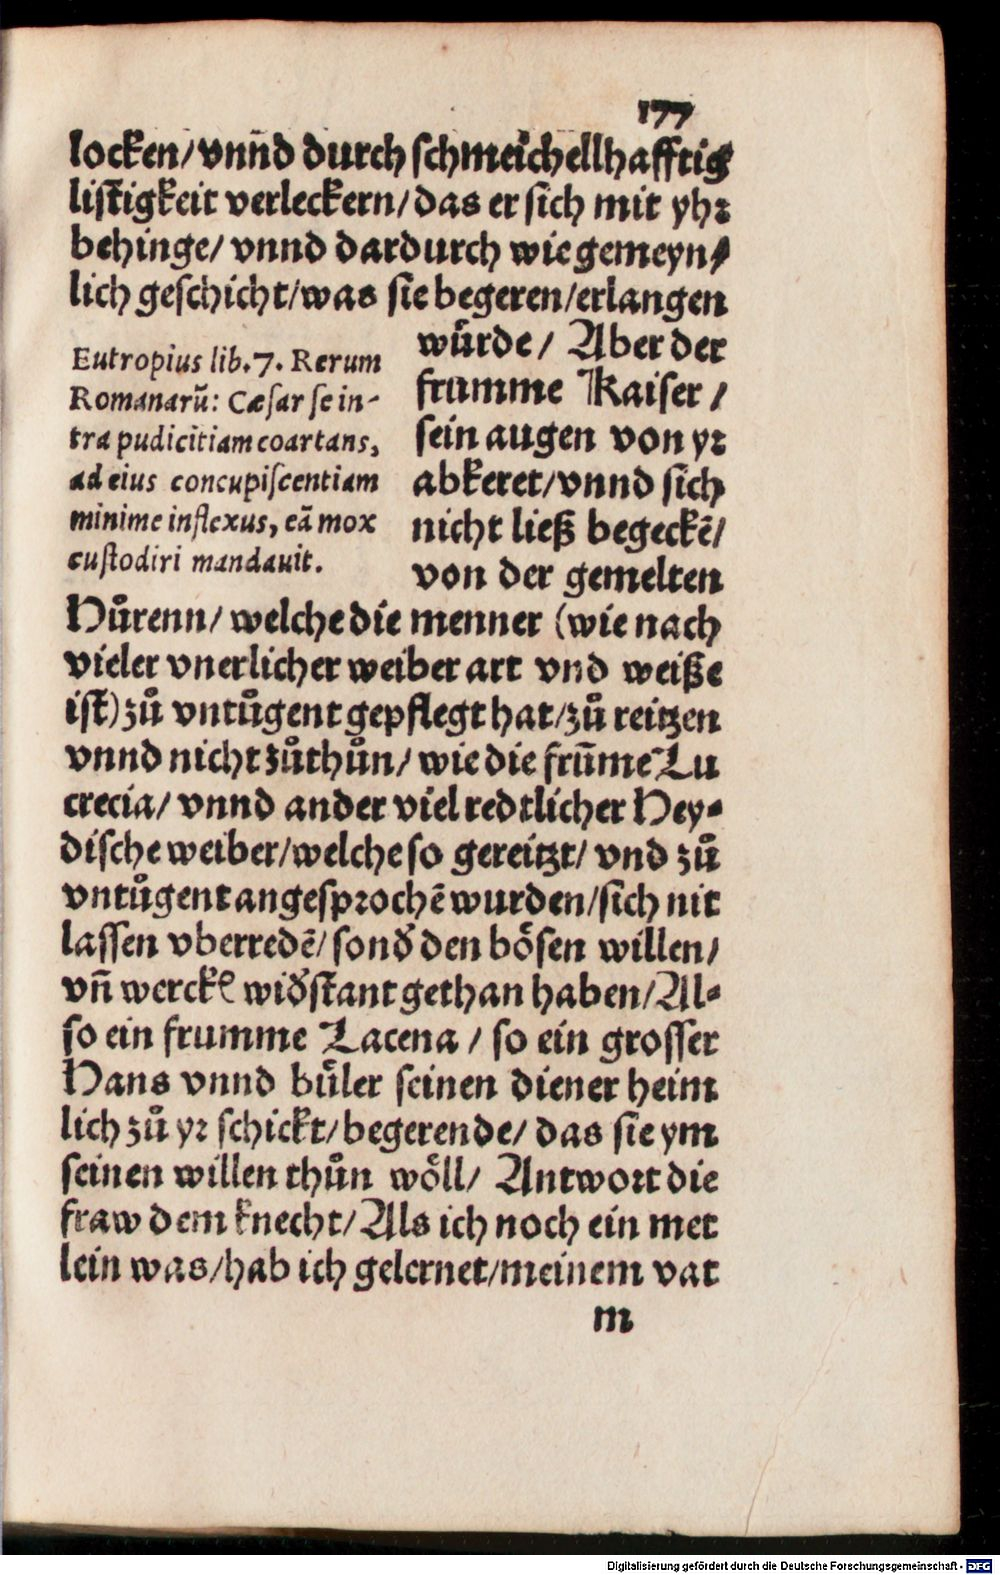 177
locken/ vnnd durch schmeichellhafftig
listigkeit verleckern/ das er sich mit yhr
behinge/ vnnd dardurch wie gemeyn⸗
lich geschicht/ was sie begeren/ erlangen
wůrde/ Aber der
frumme Kaiser /
sein augen von yr
abkeret/ vnnd sich
nicht ließ begeckē/
von der gemelten
Eutropius lib. 7. Rerum
Romanarū: Cæsar se in-
tra pudicitiam coartans,
ad eius concupiscentiam
minime inflexus, eā mox
custodiri mandauit.
Hůrenn/ welche die menner (wie nach
vieler vnerlicher weiber art vnd weiße
ist) zů vntůgent gepflegt hat/ zů reitzen
vnnd nicht zůthůn/ wie die frūme Lu
crecia/ vnnd ander viel redtlicher Hey⸗
dische weiber/ welche so gereitzt/ vnd zů
vntůgent angesprochē wurden/ sich nit
lassen vberredē/ sonď den bösen willen/
vñ werckꝭ wiďstant gethan haben/ Al⸗
so ein frumme Lacena / so ein grosser
Hans vnnd bůler seinen diener heim
lich zů yr schickt/ begerende/ das sie ym
seinen willen thůn wöll/ Antwort die
fraw dem knecht/ Als ich noch ein met
lein was/ hab ich gelernet/ meinem vat
m
Digitalisierung gefördert durch die Deutsche Forschungsgemeinschaft - DFG